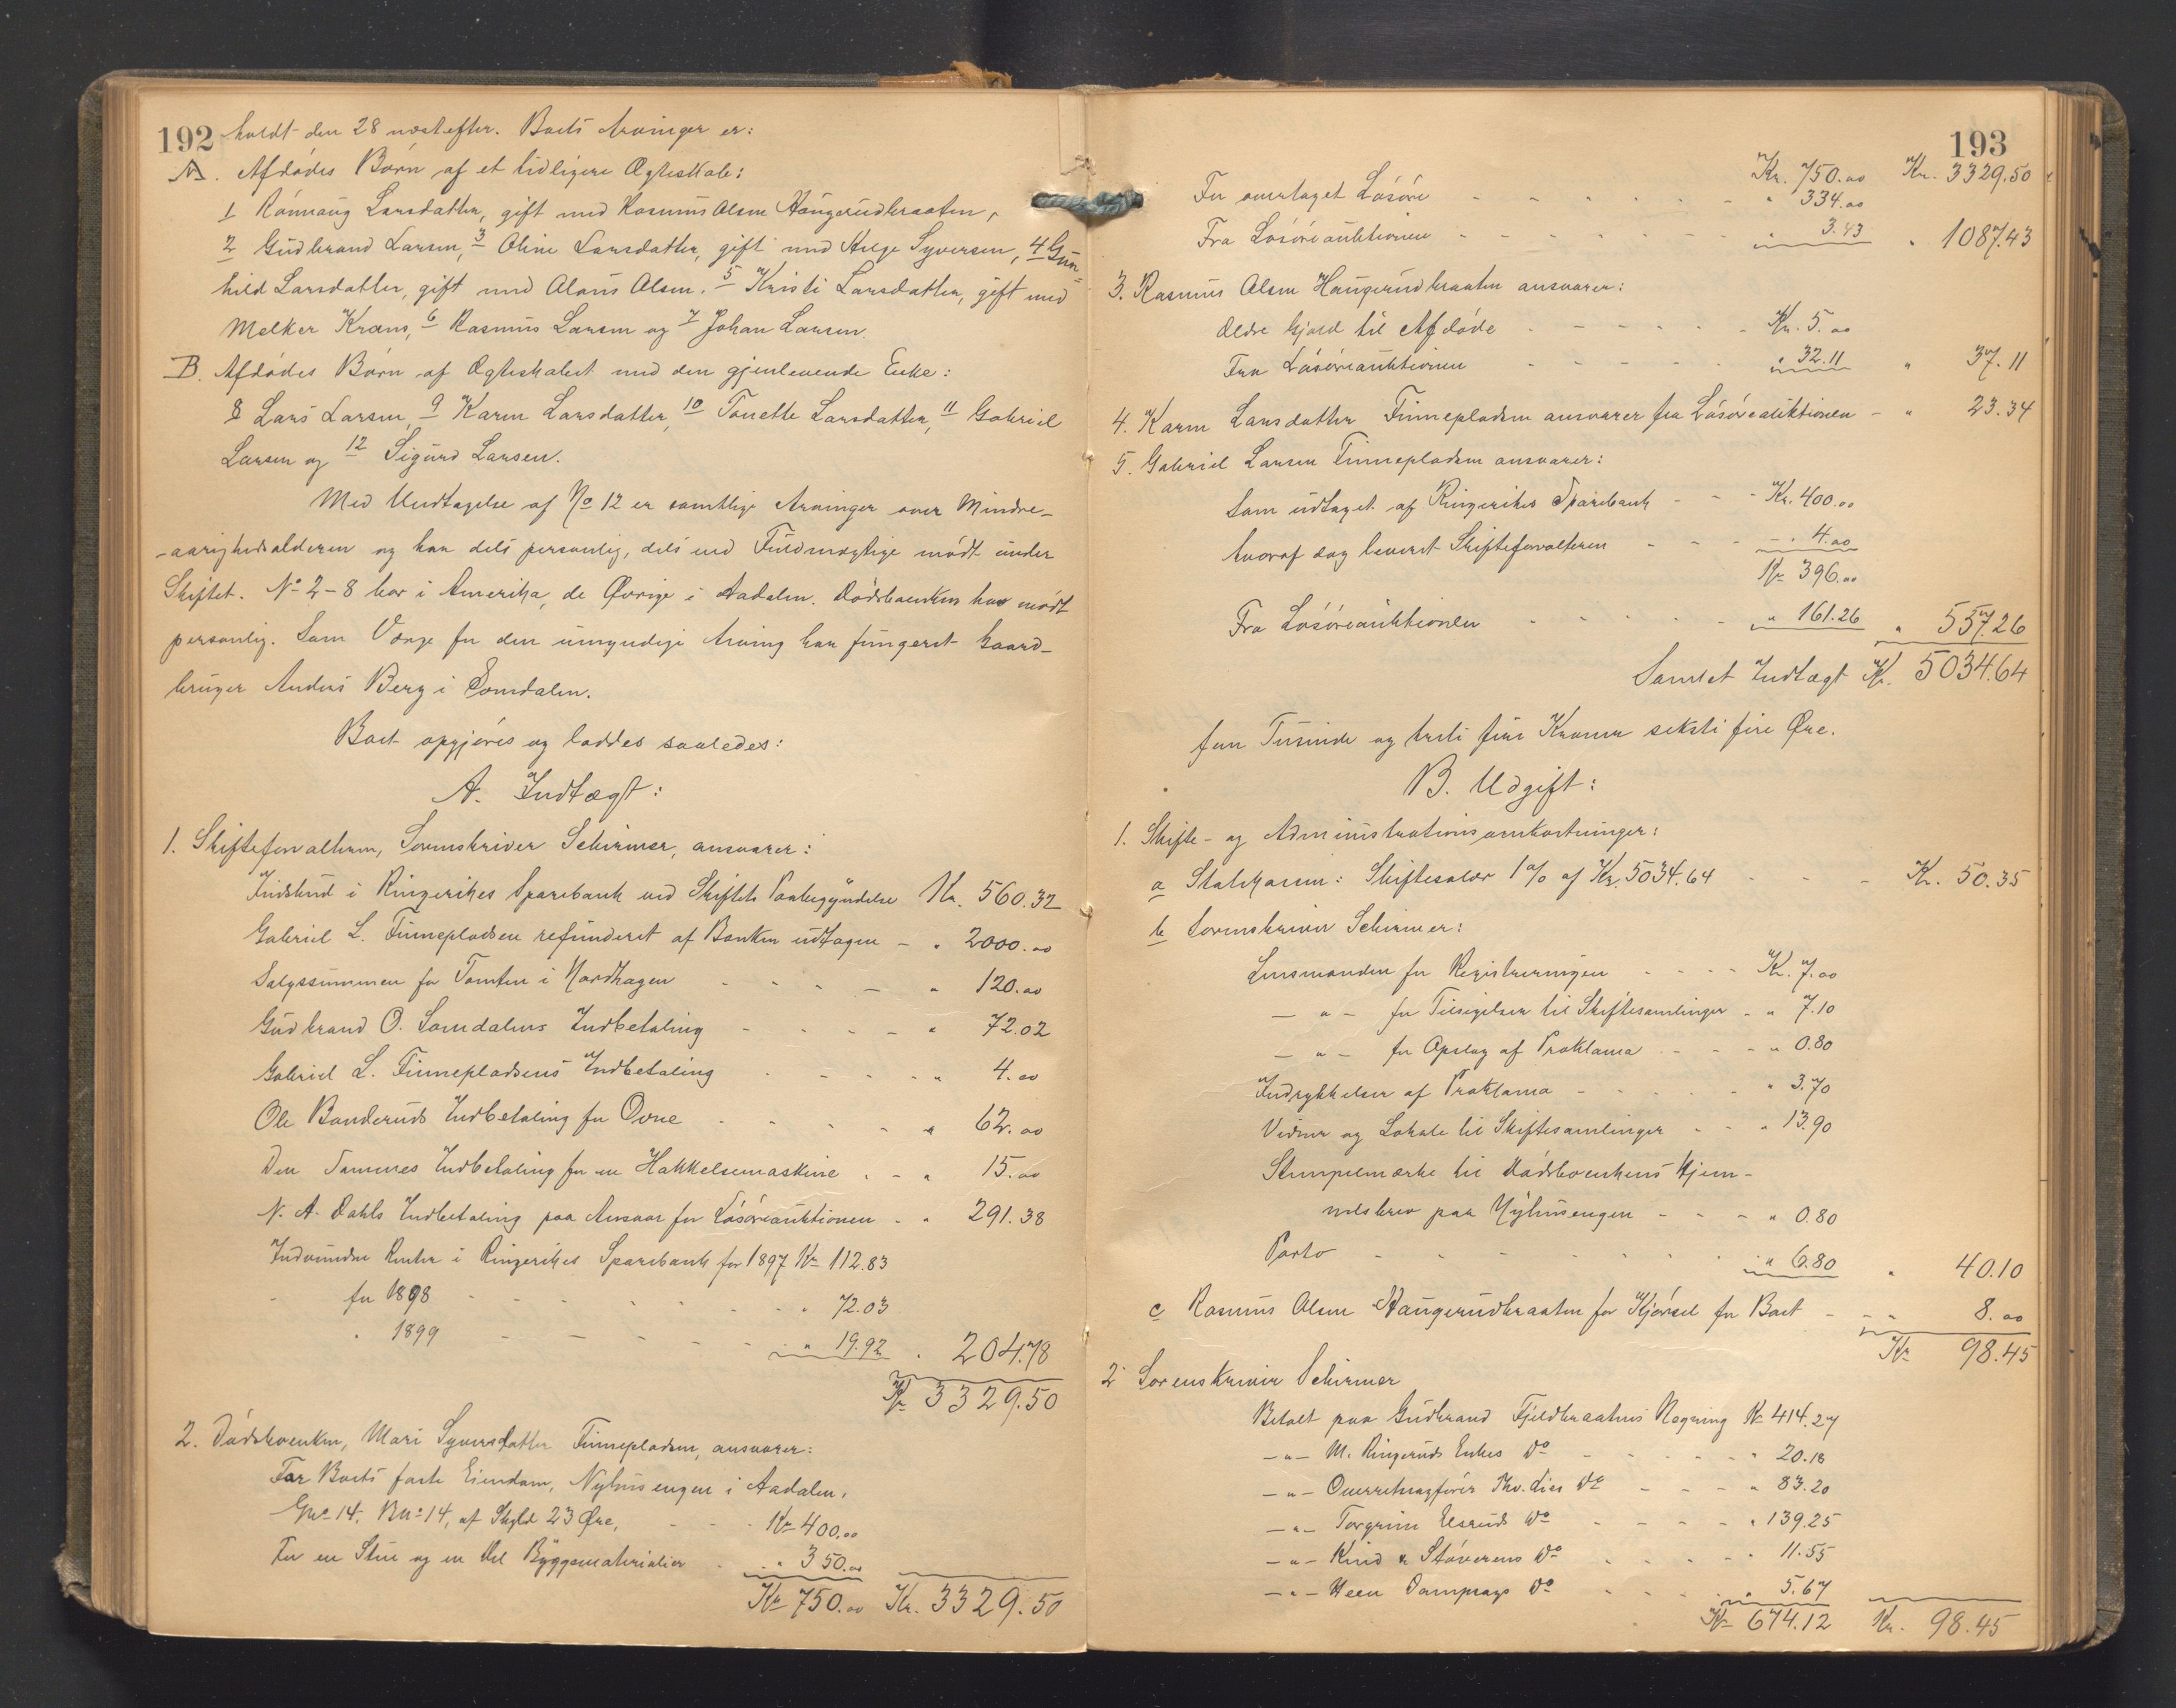 192 holdt den 28 næstefter. Boets Arvinger er:
A. Afdödes Börn af et tidligere Ægteskab:
1 Rönnaug Larsdatter, gift med Rasmus Olsen Haugerudbraaten,
2 Gudbrand Larsen, 3 Oline Larsdatter, gift med Helge Syversen, 4 Gun=
hild Larsdatter, gift med Olaus Olsen. 5 Kristi Larsdatter, gift med
Melker Kræns, 6 Rasmus Larsen og 7 Johan Larsen.
B. Afdödes Börn af Ægteskabet med den gjenlevende Enke:
8 Lars Larsen, 9 Karen Larsdatter, 10 Tonette Larsdatter, 11 Gabriel
Larsen og 12 Sigurd Larsen.
Med Undtagelse af No 12 er samtlige Arvinger over Mindre-
-aarighedsalderen og har dels personlig, dels ved Fuldmægtige mödt under
Skiftet. No 2-8 bor i Amerika, de Øvrige i Aadalen. Dödsboenken har mödt
personlig. Som Værge for den umyndige Arving har fungeret Gaard-
bruger Anders Berg i Somdalen.
Boet opgjöres og loddes saaledes:
A. Indtægt:
1. Skifteforvalteren, Sorenskriver Schirmer, ansvarer:
Indskud i Ringerikes Sparebank ved Skiftets Paabegyndelse Kr. 560.32
Gabriel L. Finnepladsen refunderet af Banken udtagne - " 2000.00
Salgssummen for Tomten i Nordhagen - - - - " 120.00
Gudbrand O. Somdalens Indbetaling - - - - " 72.02
Gabriel L. Finnepladsens Indbetaling - - - - " 4.00
Ole Banderuds Indbetaling for Ovne - - - - " 62.00
Den Sammes Indbetaling for en Hakkelsemaskine - - " 15.00
N. A. Dahls Indbetaling paa Ansvar for Lösöreauktionen - " 291.38
Indvundne Renter i Ringerikes Sparebank for 1897 Kr. 112.83
- for 1898 - - - - - - - " 72.03
" 1899 - - - - - - " 19.92 " 204.78
Kr. 3329.50
2. Dödsboenken, Mari Syversdatter Finnepladsen, ansvarer:
For Boets faste Eiendom, Nyhusengen i Aadalen,
Gno 14. Bno 14, af Skyld 23 Øre, - - - Kr. 400.00
For en Stue og en Del Byggematerialier - - " 350.00
Kr. 750.00 Kr. 3329.50
193
Kr. 750.00 Kr. 3329.50
For overtaget Lösöre - - - - - - " 334.00
Fra Lösöreauktionen - - - - - - " 3.43 " 1087.43
3. Rasmus Olsen Haugerudbraaten ansvarer:
Ældre Gjæld til Afdöde - - - - - Kr. 5.00
Fra Lösöreauktionen - - - - - " 32.11 " 37.11
4. Karen Larsdatter Finnepladsen ansvarer fra Lösöreauktionen - " 23.34
5. Gabriel Larsen Finnepladsen ansvarer:
Som udtaget af Ringerikes Sparebank - - - Kr. 400.00
hvoraf dog leveret Skifteforvalteren - - - - " 4.00
Kr. 396.00
Fra Lösöreauktionen - - - - - " 161.26 " 557.26
Samlet Indtægt Kr. 5034.64
fem Tusinde og tretti fire Kroner seksti fire Øre.
B. Udgift:
1. Skifte- og Administrationsomkostninger:
a Statskassen: Skiftesalær 1 % af Kr. 5034.64 - - - Kr. 50.35
b Sorenskriver Schirmer:
Lensmanden for Registreringen - - - - Kr. 7.00
- " - for Tilsigelser til Skiftesamlinger - " 7.10
- " - for Opslag af Proklama - - - - " 0.80
Indrykkelser af Proklama - - - - - " 3.70
Vidner og Lokale til Skiftesamlinger - - " 13.90
Stempelmærke til Dödsboenkens Hjem-
melsbrev paa Nyhusengen - - - - " 0.80
Porto - - - - - - - " 6.80 " 40.10
c Rasmus Olsen Haugerudbraaten for Kjörsel for Boet - - " 8.00
Kr. 98.45
2 Sorenskriver Schirmer
Betalt paa Gudbrand Fjeldbraatens Regning Kr. 414.27
- " - M. Ringeruds Enkes Do - - - - - " 20.18
- " - Overretssagförer Thv. Lies Do - - - " 83.20
- " - Torgrim Elsruds Do - - - - " 139.25
- " - Kind & Stöverens Do - - - - " 11.55
- " - Heen Dampsags Do - - - - " 5.67
Kr. 674.12 Kr. 98.45